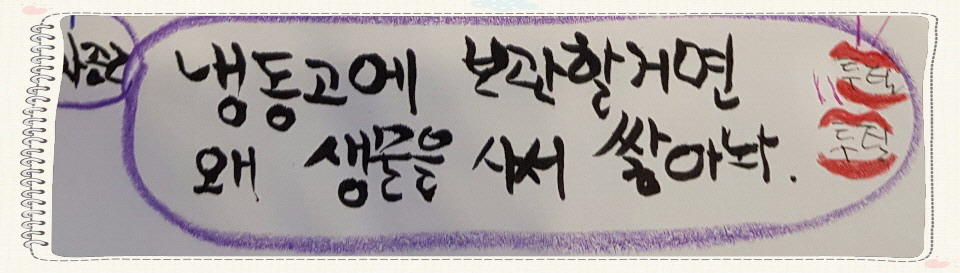 냉동고에 보관할거면
왜 생물을 사서 쌓아놔.
투덜
투덜